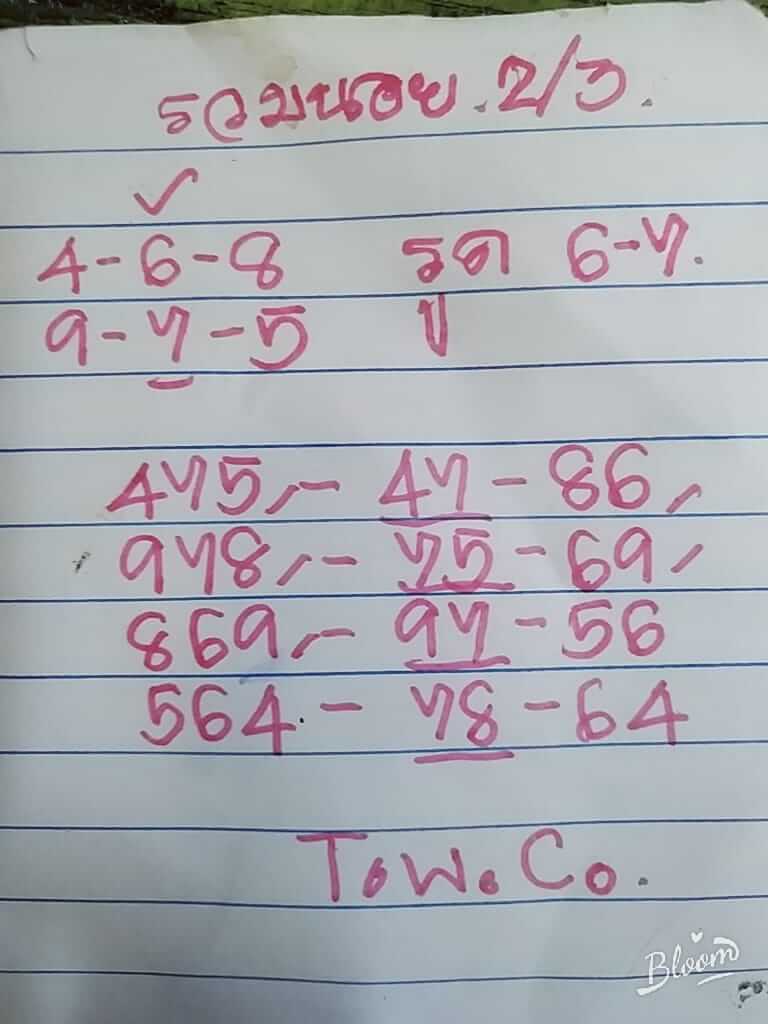 รวมหนอย. 2/3.
✓
4-6-8 รูด 6-7.
9-7-5 ปู
475,- 47-86,
978,- 75-69,
869,- 97-56
564.- 78-64
T.W.Co.
Bloom